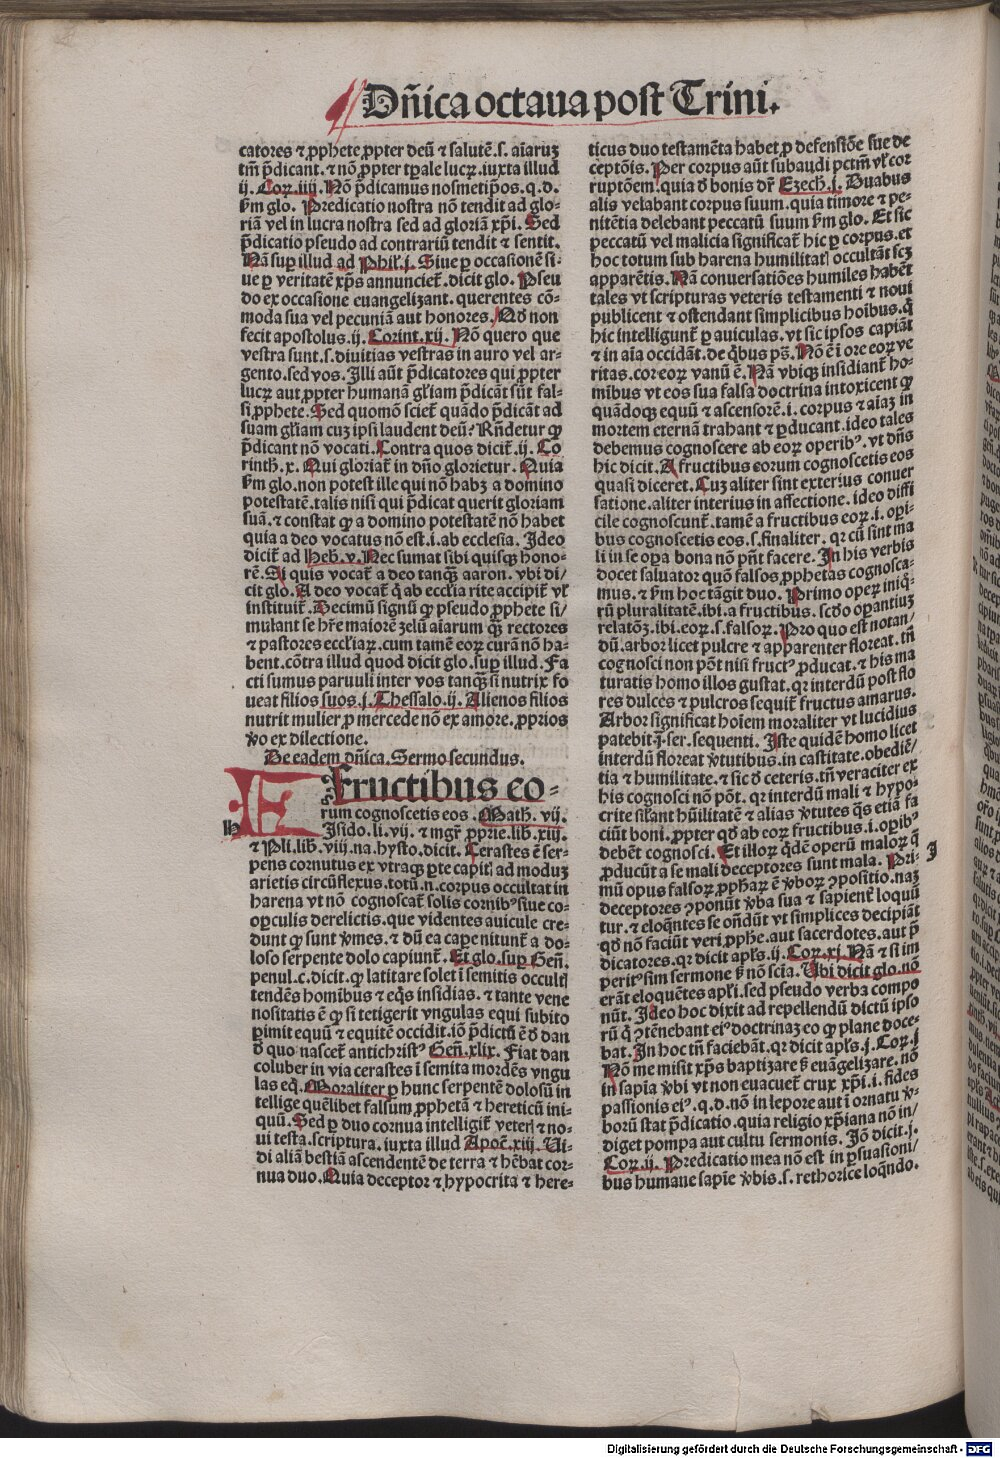 Dñica octaua post Trini.
catores ⁊ ꝓphete ꝓpter deũ ⁊ salutẽ.s. aĩaruꝫ
tm̃ p̃dicant. ⁊ nõ ꝓpter tꝑale lucꝝ. iuxta illud
ij. Coꝝ. iiij. Nõ p̃dicamus nosmetip̃os. q. d.
ẜm glo. Predicatio nostra nõ tendit ad glo-
riã vel in lucra nostra sed ad gloriã xp̃i. Sed
p̃dicatio pseudo ad contrariũ tendit ⁊ sentit.
Nã suꝑ illud ad Phil'. j. Siue ꝑ occasionẽ si-
ue ꝑ veritatẽ xp̃s annunciet̃. dicit glo. Pseu
do ex occasione euangelizant. querentes cõ-
moda sua vel pecuniã aut honores. Qd non
fecit apostolus. ij. Corint. xij. Nõ quero que
vestra sunt. s. diuitias vestras in auro vel ar-
gento. sed vos. Illi aũt p̃dicatores qui ꝓpter
lucꝝ aut ꝓpter humanã gl'iam p̃dicãt sũt fal-
si ꝓphete. Sed quomõ sciet̃ quãdo p̃dicãt ad
suam gl'iam cuꝫ ipsi laudent deũ? Rñdetur ꝙ
p̃dicant nõ vocati. Contra quos dicit̃. ij. Co
rinth. x. Qui gloriat̃ in dño glorietur. Quia
ẜm glo. non potest ille qui nõ habꝫ a domino
potestatẽ. talis nisi qui p̃dicat querit gloriam
suã. ⁊ constat ꝙ a domino potestatẽ nõ habet
quia a deo vocatus nõ est. i. ab ecclesia. Ideo
dicit̃ ad Heb. v. Nec sumat sibi quisqꝫ hono-
rẽ. Si quis vocat̃ a deo tanqꝫ̃ aaron. vbi di/
cit glo. A deo vocat̃ q̃ ab eccl'ia rite accipit̃ vl'
instituit̃. Decimũ signũ ꝙ pseudo ꝓphete si/
mulant se hr̃e maiorẽ zelũ aĩarum qꝫ̃ rectores
⁊ pastores eccl'iaꝝ. cum tamẽ eoꝝ curã nõ ha-
bent. cõtra illud quod dicit glo. suꝑ illud. Fa
cti sumus paruuli inter vos tanqꝫ̃ si nutrix fo
ueat filios suos. j. Thessalo. ij. Alienos filios
nutrit mulier ꝓ mercede nõ ex amore. ꝓprios
v̾o ex dilectione.
De eadem dñica. Sermo secundus.
A fructibus eo-
rum cognoscetis eos. Math. vij.
H Isido. li. vij. ⁊ mgr̃ ꝓprie. lib. xiij.
⁊ Pli. lib. viij. na. hysto. dicit. Cerastes ẽ ser-
pens cornutus ex vtraqꝫ ꝑte capitꝭ ad moduꝫ
arietis circũflexus. totũ. n. corpus occultat in
harena vt nõ cognoscat̃ solis cornibꝰ siue co-
oꝑculis derelictis. que videntes auicule cre-
dunt ꝙ sunt v̾mes. ⁊ dũ ea capere nitunt̃ a do-
loso serpente dolo capiunt̃. Et glo. suꝑ Geñ.
penul. c. dicit. ꝙ latitare solet ĩ semitis occultꝭ
tendẽs homĩbus ⁊ eq̃s insidias. ⁊ tante vene
nositatis ẽ ꝙ si tetigerit vngulas equi subito
ꝑimit equũ ⁊ equitẽ occidit. iõ p̃dictũ ẽ d̾ dan
d̾ quo nascet̃ antichristꝰ Geñ. xlix. Fiat dan
coluber in via cerastes ĩ semita mordẽs vngu
las eq̃. Moraliter ꝑ hunc serpentẽ dolosũ in
tellige quẽlibet falsum ꝓphetã ⁊ hereticũ ini-
quũ. Sed ꝑ duo cornua intelligit̃ veterꝭ ⁊ no-
ui testa. scriptura. iuxta illud Apoc̃. xiij. Ui-
di aliã bestiã ascendentẽ de terra ⁊ hẽbat cor-
nua duo. Quia deceptor ⁊ hypocrita ⁊ here-
ticus duo testamẽta habet ꝓ defensiõe sue de
ceptõis. Per corpus aũt subaudi pctm̃ vl' cor
ruptõem. quia d̾ bonis dr̃ Ezech. j. Duabus
alis velabant corpus suum. quia timore ⁊ pe-
nitẽtia delebant peccatũ suum ẜm glo. Et sic
peccatũ vel malicia significat̃ hic ꝑ corpus. et
hoc totum sub harena humilitatꝭ occultãt scꝫ
apparẽtis. Nã conuersatiões humiles habẽt
tales vt scripturas veteris testamenti ⁊ noui
publicent ⁊ ostendant simplicibus hoĩbus. q̃
hic intelligunt̃ ꝑ auiculas. vt sic ipsos capiãt
⁊ in aĩa occidãt. de q̃bus ps̃. Nõ ẽ ĩ ore eoꝝ ve
ritas. cor eoꝝ vanũ ẽ. Nã vbiqꝫ insidiant̃ ho-
mĩbus vt eos sua falsa doctrina intoxicent ꝙ
quãdoqꝫ equũ ⁊ ascensorẽ. i. corpus ⁊ aĩaꝫ in
mortem eternã trahant ⁊ ꝑducant. ideo tales
debemus cognoscere ab eoꝝ operibꝰ. vt dñs
hic dicit. A fructibus eorum cognoscetis eos
quasi diceret. Cuꝫ aliter sint exterius conuer
satione. aliter interius in affectione. ideo diffi
cile cognoscunt̃. tamẽ a fructibus eoꝝ. i. oꝑi-
bus cognoscetis eos. s. finaliter. qꝛ cũ sint ma
li in se oꝑa bona nõ pñt facere. In his verbis
docet saluator quõ falsos ꝓphetas cognosca-
mus. ⁊ ẜm hoc tãgit duo. Primo opeꝝ iniq̃-
rũ pluralitatẽ. ibi. a fructibus. scd̾o oꝑantiuꝫ
relatõꝫ. ibi. eoꝝ. s. falsoꝝ. Pro quo est notan/
dũ. arbor licet pulcre ⁊ apparenter floreat. tñ
cognosci non põt nisi fructꝰ ꝓducat. ⁊ his ma
turatis homo illos gustat. qꝛ interdũ post flo
res dulces ⁊ pulcros sequit̃ fructus amarus.
Arbor significat hoĩem moraliter vt lucidius
patebit ĩ ser. sequenti. Iste quidẽ homo licet
interdũ floreat v̾tutibus. in castitate. obediẽ/
tia ⁊ humilitate. ⁊ sic d̾ ceteris. tñ veraciter ex
his cognosci nõ põt. qꝛ interdũ mali ⁊ hypo-
crite sil'ant hũilitatẽ ⁊ alias v̾tutes qꝫ̃ etiã fa
ciũt boni. ꝓpter qd̾ ab eoꝝ fructibus. i. oꝑibꝰ
debẽt cognosci. Et illoꝝ q̃dẽ operũ maloꝝ q̃ J
ꝓducũt a se mali deceptores sunt mala. Pri-
mũ opus falsoꝝ ꝓphaꝝ ẽ v̾boꝝ ꝯpositio. naꝫ
deceptores ꝯponũt v̾ba sua ⁊ sapient̃ loquũ
tur. ⁊ eloq̃ntes se oñdũt vt simplices decipiãt
qd̾ nõ faciũt veri ꝓphe. aut sacerdotes. aut p̃
dicatores. qꝛ dicit apl's. ij. Coꝝ. xi. Nã ⁊ si im
peritꝰ sim sermone ẜ nõ scĩa. Ubi dicit glo. nõ
erãt eloquẽtes apl'i. sed pseudo verba compo
nũt. Ideo hoc dixit ad repellendũ dictũ ipso
rũ q̃ ꝯtẽnebant eiꝰ doctrinaꝫ eo ꝙ plane doce-
bat. In hoc tñ faciebãt. qꝛ dicit apl's. j. Coꝝ. j
Nõ me misit xp̃s baptizare ẜ euãgelizare. nõ
in sapĩa v̾bi vt non euacuet̃ crux xp̃i. i. fides
passionis eiꝰ. q. d. nõ in lepore aut ĩ ornatu v̾-
borũ stat p̃dicatio. quia religio xp̃iana nõ in/
diget pompa aut cultu sermonis. Iõ dicit. j.
Coꝝ. ij. Predicatio mea nõ est in ꝑsuasioni/
bus humane sapĩe v̾bis. s. rethorice loq̃ndo.
Digitalisierung gefördert durch die Deutsche Forschungsgemeinschaft - DFG